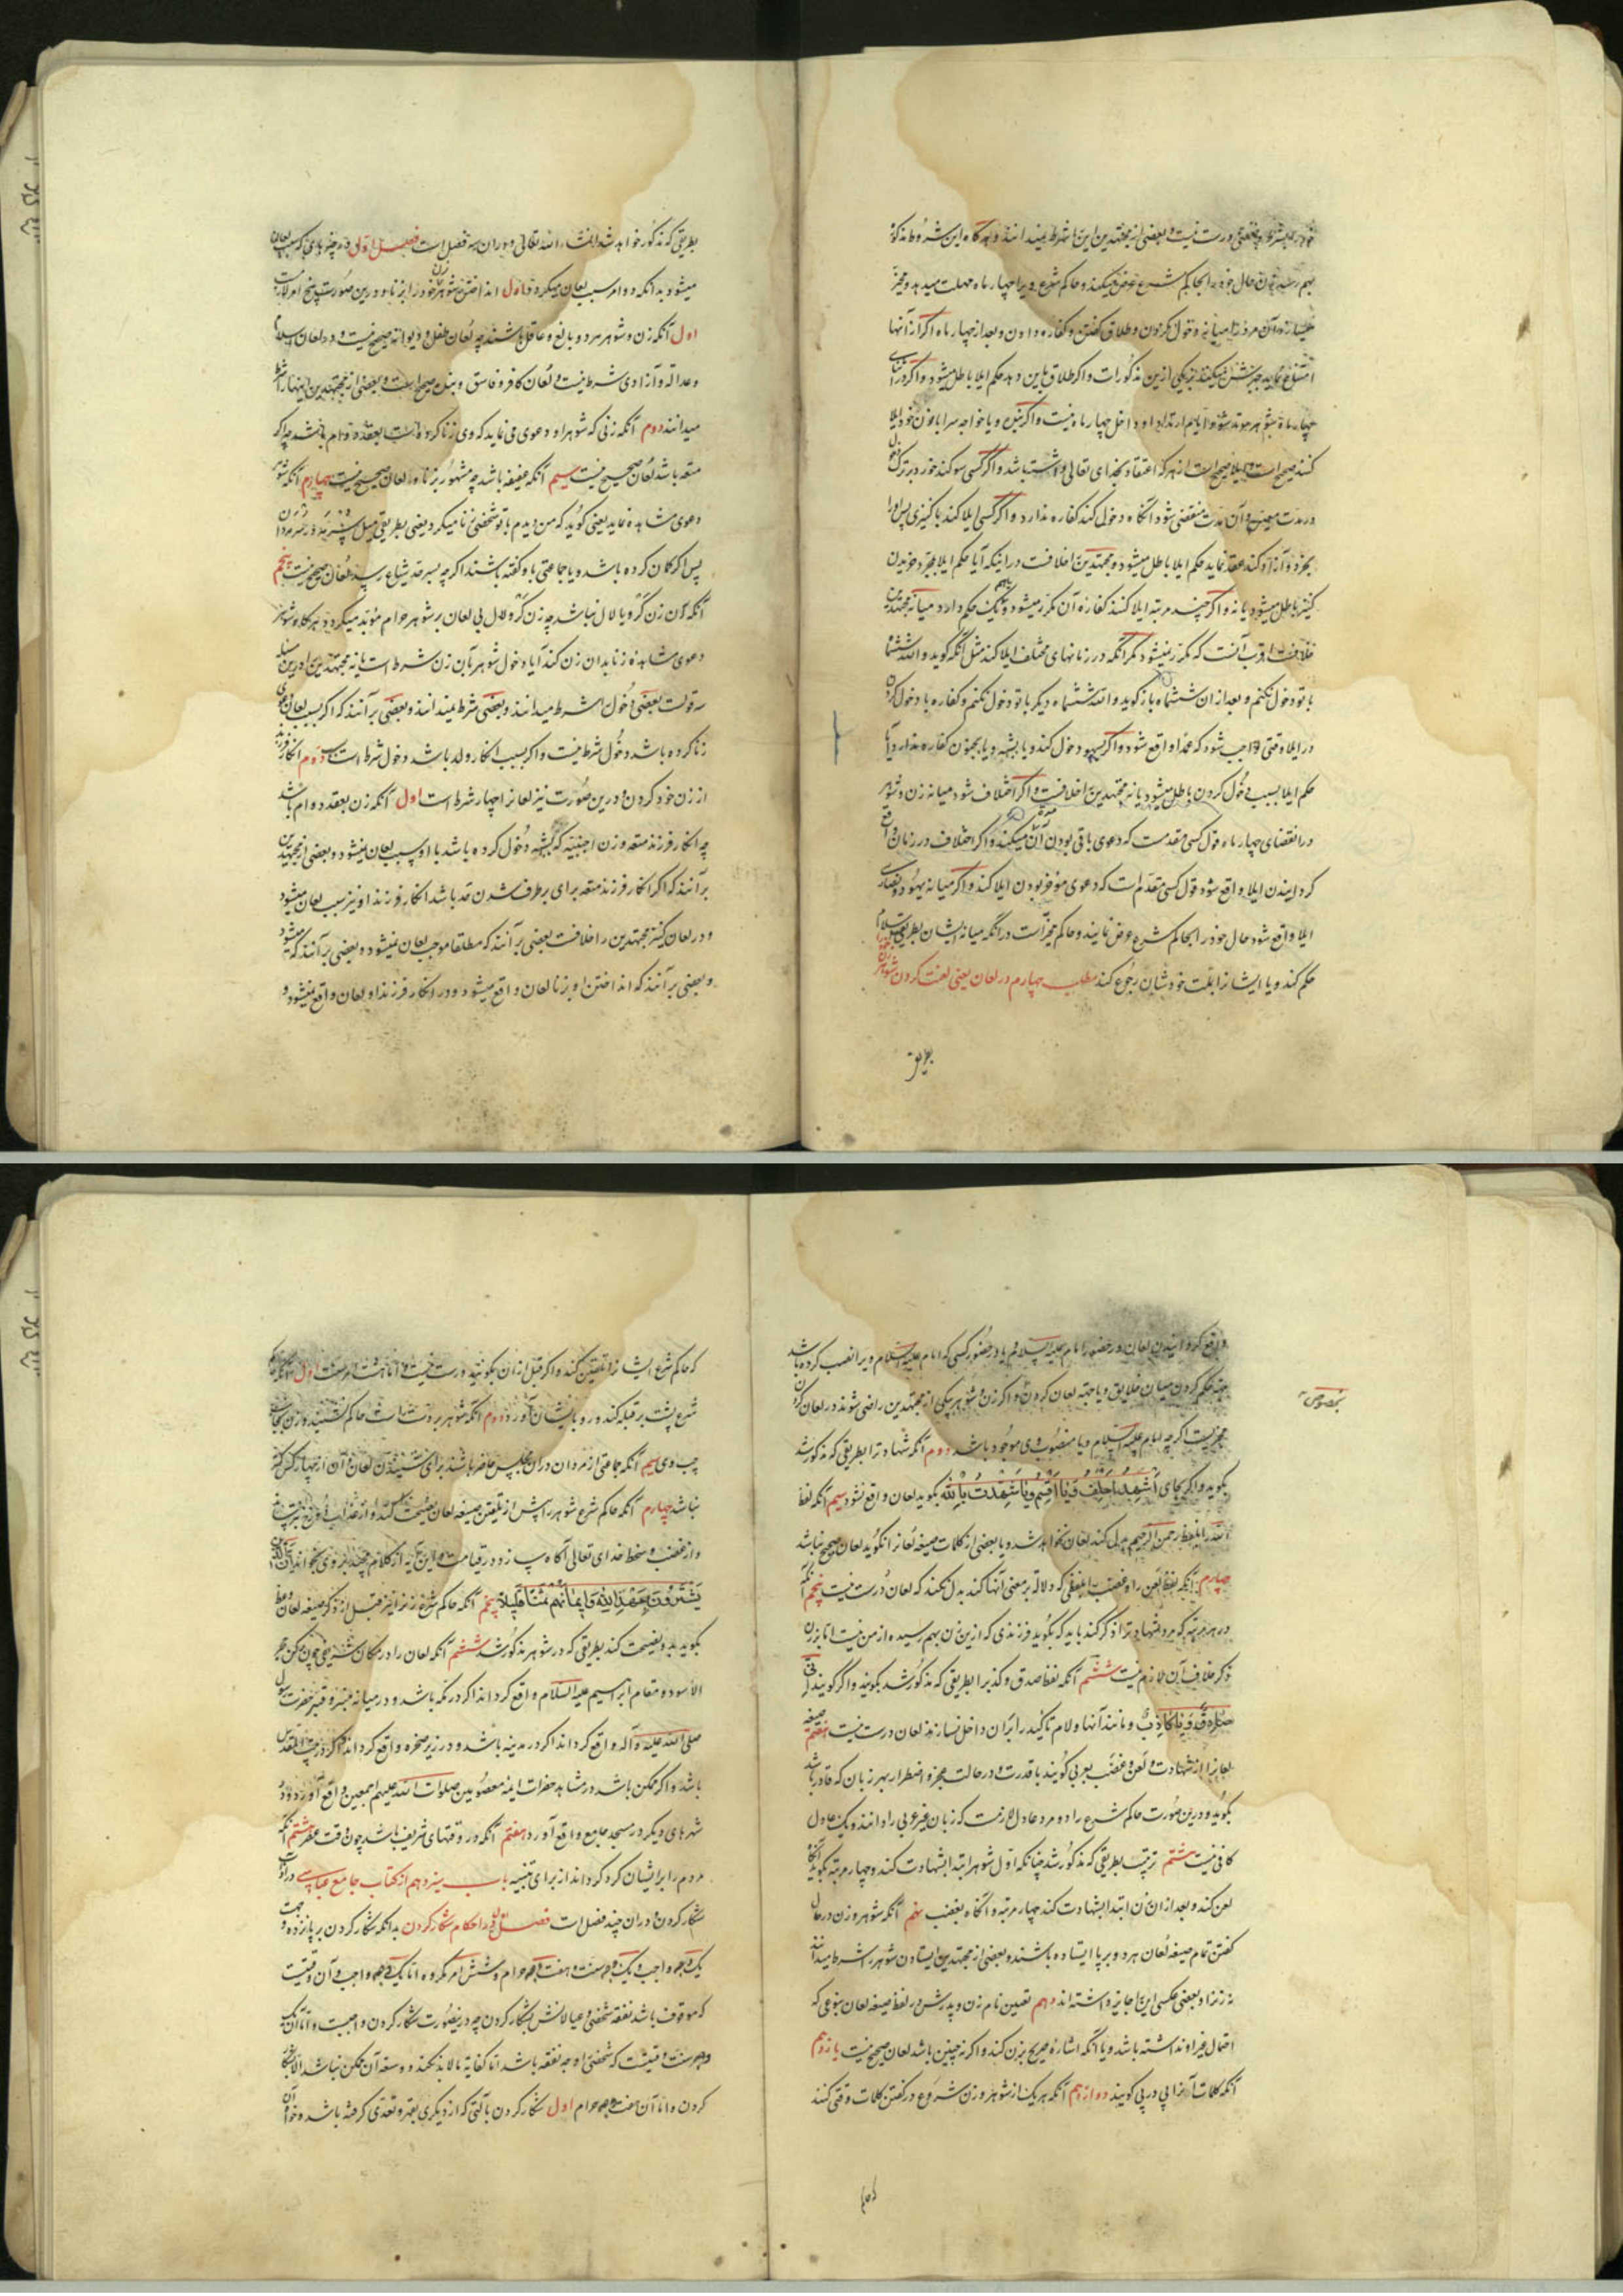 بهم رسد زن حال خود را بحاکم شرع عرض میکند و حاکم شرع ویرا چهار ماه مهلت میدهد و مخیر
میسازد آن مرد را میانه دخول کردن و طلاق گفتن و کفاره دادن و بعد از چهار ماه اگر از آنها
امتناع نماید جبرش میکنند بر یکی ازین مذکورات و اگر طلاق باین دهد حکم ایلا باطل میشود و اگر در اثنای
چهار ماه شوهر مرتد شود ایام ارتداد او داخل چهار ماه نیست و اگر خصی و یا خواجه سرا با زن خود ایلا
کنند صحیح است و ایلا صحیح است از هر که اعتقاد بخدای تعالی داشته باشد و اگر کسی سوکند خورد بر ترک دخول
در مدت معین و آن مدت منقضی شود آنکاه دخول کند کفاره ندارد و اگر کسی ایلا کند با کنیزی پس او را
بخرد و آزاد کند و عقد نماید حکم ایلا باطل میشود و مجتهدین را خلافست در اینکه آیا حکم ایلا بمجرد خریدن
کنیز باطل میشود یا نه و اگر چند مرتبه ایلا کنند کفاره آن مکرر میشود و یا همه یک حکم دارد میانه مجتهدین
خلافست اقرب آنست که مکرر نمیشود مگر آنکه در زمانهای مختلف ایلا کند مثل آنکه گوید والله ششماه
با تو دخول نکنم و بعد از آن ششماه باز گوید والله ششماه دیگر با تو دخول نکنم و کفاره با دخول کردن
در ایلا وقتی واجب شود که عمدا واقع شود و اگر بسهو دخول کند و یا بشبهه و یا بجنون کفاره ندارد و آیا
حکم ایلا بسبب دخول کردن باطل میشود یا نه مجتهدین را خلافست و اگر اختلاف شود میانه زن و شوهر
در انقضای چهار ماه قول کسی مقدمست که دعوی باقی بودن آن میکند و اگر اختلاف در زمان واقع
کردانیدن ایلا واقع شود قول کسی مقدم است که دعوی موخر بودن ایلا کند و اگر میانه یهود و نصاری
ایلا واقع شود حال خود را بحاکم شرع عرض نمایند و حاکم مخیر است در آنکه میانه ایشان بطریق اسلام
حکم کند و یا ایشان را بملت خودشان رجوع کند مطلب چهارم در لعان یعنی لعنت کردن شوهر
بطریق
بطریقی که مذکور خواهد شد انشاء الله تعالی و در ان سه فصل است فصل اول در چیزهای که سبب لعان
میشود بدانکه دو امر سبب لعان میکردد اول انداختن شوهر زن خود را بزنا و درین صورت پنج امر لازمست
اول آنکه زن و شوهر هر دو بالغ و عاقل باشند چه لعان طفل و دیوانه صحیح نیست و در لعان اسلام
و عدالة و آزادی شرط نیست و لعان کافر و فاسق و بنده صحیح است و بعضی از مجتهدین اینها را شرط
میدانند دوم آنکه زنی که شوهر او دعوی می نماید که وی زنا کرده است بعقد دوام باشد چه اگر
متعه باشد لعان صحیح نیست سیم آنکه عفیفه باشد چه مشهور بزنا را لعان صحیح نیست چهارم آنکه شوهر
دعوی مشاهده نماید یعنی کوید که من دیدم با تو شخصی زنا میکرد یعنی بطریق میل
پس اگر کمان کرده باشد و یا جماعتی باو گفته باشند اگر چه بسر حد شیاع رسیده لعان صحیح نیست پنجم
آنکه آن زن کر و یا لال نباشد چه زن کر و لال بی لعان بر شوهر حرام مؤبد میکردد و هر کاه شوهر
دعوی مشاهده زنا بدان زن کند آیا دخول شوهر بآن زن شرط است یا نه مجتهدین را درین مسئله
سه قولست بعضی دخول را شرط میدانند و بعضی شرط نمیدانند و بعضی برآنند که اگر بسبب لعان دعوی
زنا کرده باشد دخول شرط نیست و اگر بسبب انکار ولد باشد دخول شرط است دوم انکار فرزند
از زن خود کردن و درین صورت نیز لعان را چهار شرط است اول آنکه زن بعقد دوام باشد
چه انکار فرزند متعه و زن اجنبیه که بشبهه دخول کرده باشد با او سبب لعان نمیشود و بعضی از مجتهدین
برآنند که اگر انکار فرزند متعه برای برطرف شدن حد باشد انکار فرزند او نیز سبب لعان میشود
و در لعان کنیز مجتهدین را خلافست بعضی برآنند که مطلقا موجب لعان نمیشود و بعضی برآنند که میشود
و بعضی برآنند که انداختن او بزنا لعان واقع میشود و در انکار فرزند او لعان واقع نمیشود و
واقع کردانیدن لعان در حضور امام علیه السلام یا در حضور کسی که امام علیه السلام ویرا نصب کرده باشد
جهة حکم کردن میان خلایق و یا جهة لعان کردن و اگر زن و شوهر بیکی از مجتهدین راضی شوند در لعان کردن
مخیریست اگر چه امام علیه السلام و یا منصوب وی موجود باشد دوم آنکه شهادت را بطریقی که مذکور شد
بخصوص
بگوید و اگر بجای اشهد احلف و یا اقسم و یا شهدت بالله بگوید لعان واقع نشود سیم آنکه لفظ
الله را بلفظ رحمن الرحیم بدل کند لعان نخواهد شد و یا بعضی از کلمات صیغه لعان را نگوید لعان صحیح نباشد
چهارم آنکه لفظ لعن را و غضب را بلفظی که دلالة بر معنی آنها کند بدل نکند که لعان درست نیست پنجم آنکه
در هر مرتبه که مرد شهادت را ذکر کند باید که بگوید فرزندی که ازین زن بهم رسیده از من نیست اما بر زن
ذکر خلاف آن لازم نیست ششم آنکه لفظ صدق و کذب را بطریقی که مذکور شد بگویند و اگر گویند انی
و مانند آنها و لام تاکید را بران داخل نسازند لعان درست نیست هفتم صیغه
لعان را از شهادت و لعن و غضب بعربی گویند با قدرت و در حالت عجز و اضطرار بهر زبان که قادر باشد
بگوید و درین صورت حاکم شرع را دو مرد عادل لازمست که زبان غیر عربی را دانند و یک عادل
کافی نیست هشتم ترتیب بطریقی که مذکور شد چنانکه اول شوهر ابتدا بشهادت کند و چهار مرتبه بگوید آنگاه
لعن کند و بعد از ان زن ابتدا بشهادت کند چهار مرتبه و آنگاه بغضب نهم آنکه شوهر و زن در حال
گفتن تمام صیغه لعان هر دو بر پا ایستاده باشند و بعضی از مجتهدین ایستادن شوهر را شرط میدانند
نه زن را و بعضی عکس این را جایز داشته اند دهم تعیین نام زن و پدرش در لفظ صیغه لعان بنوعی که
احتمال غیر او نداشته باشد و یا آنکه اشاره صریح بزن کند و اگر نه چنین باشد لعان صحیح نیست یازدهم
آنکه کلمات آنرا پی در پی گویند دوازدهم آنکه هر یک از شوهر و زن شروع در گفتن کلمات وقتی کنند
که حاکم شرع ایشان را تلقین کند و اگر قبل از ان بگویند درست نیست و اما هشت امر سنت اول آنکه حاکم
شرع پشت بر قبله کند و رو بایشان آورد دوم آنکه شوهر بر دست راست حاکم نشیند و زن بجانب
چپ وی سیم آنکه جماعتی از مردان در ان مجلس حاضر باشند برای شنیدن لعان و آن از چهار کس کمتر
نباشد چهارم آنکه حاکم شرع شوهر را پس از تلقین صیغه لعان نصیحت کند و از عذاب آخرت بترساند
و از غضب و سخط خدای تعالی آگاه سازد در قیامت و این آیه از کلام مجید بر وی بخواند ان الذین
یشترون بعهد الله و ایمانهم ثمنا قلیلا پنجم آنکه حاکم شرع زن را نیز قبل از ذکر صیغه لعان وعظ
بگوید و نصیحت کند بطریقی که در شوهر مذکور شد ششم آنکه لعان را در مکان شریفی چون رکن حجر
الاسود و مقام ابراهیم علیه السلام واقع کردانند اگر در مکه باشد و در میانه منبر و قبر حضرت رسول
صلی الله علیه و آله واقع کردانند اگر در مدینه باشد و در زیر صخره واقع کردانند اگر در بیت المقدس
باشد و اگر ممکن باشد در مشاهد حضرات ائمه معصومین صلوات الله علیهم اجمعین واقع آورد و در
شهرهای دیگر در مسجد جامع واقع آورد هفتم آنکه در وقتهای شریف باشد چون وقت عصر هشتم آنکه
مردم را بر ایشان گرد کرداند از برای تنبیه باب سیزدهم از کتاب جامع عباسی در آداب
شکار کردن و در ان چند فصل است فصل اول در احکام شکار کردن بدانکه شکار کردن بر پانزده وجهست
یک وجه واجب و یک وجه سنت و هفت وجه حرام و شش امر مکروه اما یک وجه واجب و آن وقتیست
که موقوف باشد نفقه شخصی و عیالانش بشکار کردن چه درینصورت شکار کردن واجبست و اما آن یک
وجه سنت وقتیست که شخصی را وجه نفقه باشد اما کفایة مالابد نکند و وسعه آن ممکن نباشد الا بشکار
کردن و اما آن هفت وجه حرام اول شکار کردن بآلتی که از دیگری بقهر و تعدی گرفته باشد و خواه آن